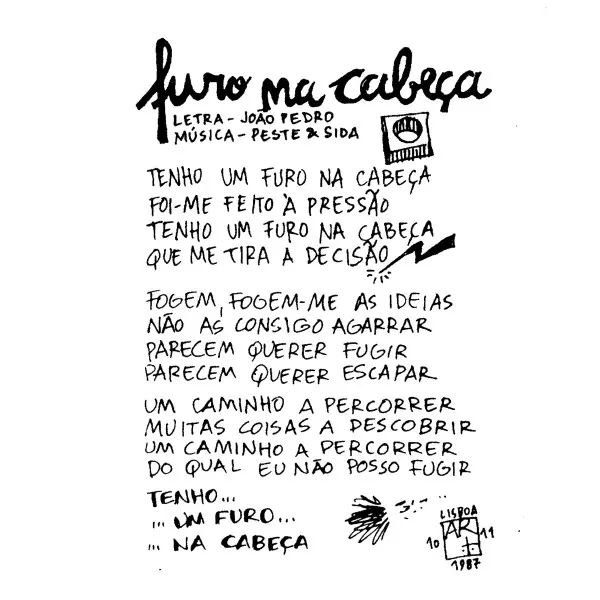 furo na cabeça
LETRA - JOÃO PEDRO
MÚSICA - PESTE & SIDA
TENHO UM FURO NA CABEÇA
FOI-ME FEITO À PRESSÃO
TENHO UM FURO NA CABEÇA
QUE ME TIRA A DECISÃO
FOGEM, FOGEM-ME AS IDEIAS
NÃO AS CONSIGO AGARRAR
PARECEM QUERER FUGIR
PARECEM QUERER ESCAPAR
UM CAMINHO A PERCORRER
MUITAS COISAS A DESCOBRIR
UM CAMINHO A PERCORRER
DO QUAL EU NÃO POSSO FUGIR
TENHO...
... UM FURO...
... NA CABEÇA
LISBOA
10 ART 11
1987